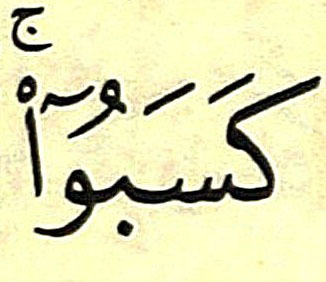 كَسَبُوٓا۟ ۚ